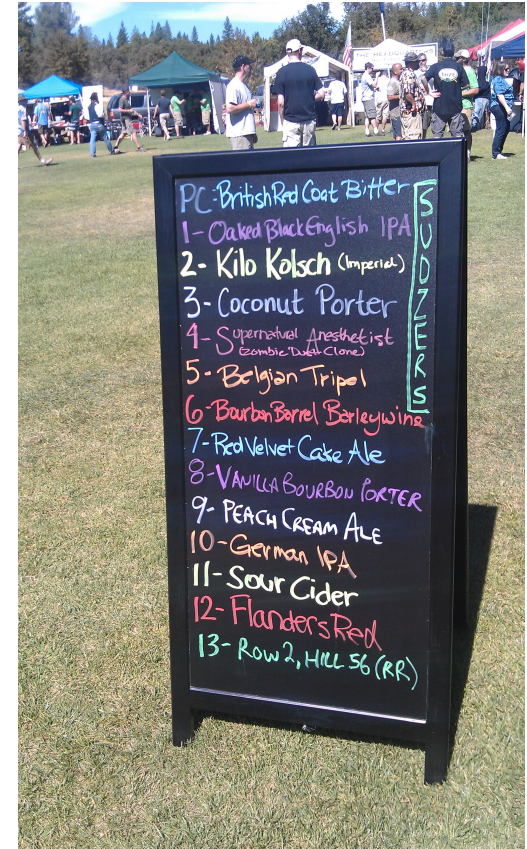 THE HEADQUARTERS
PC-British Red Coat Bitter
1- Oaked Black English IPA
2- Kilo Kolsch (Imperial)
3- Coconut Porter
4- Supernatural Anesthetist
(Zombie Dust Clone)
5- Belgian Tripel
6- Bourbon Barrel Barleywine
7- Red Velvet Cake Ale
8- VANILLA BOURBON PORTER
9- PEACH CREAM ALE
10- German IPA
11- Sour Cider
12- Flanders Red
13- ROW 2, HILL 56 (RR)
SUDZERS